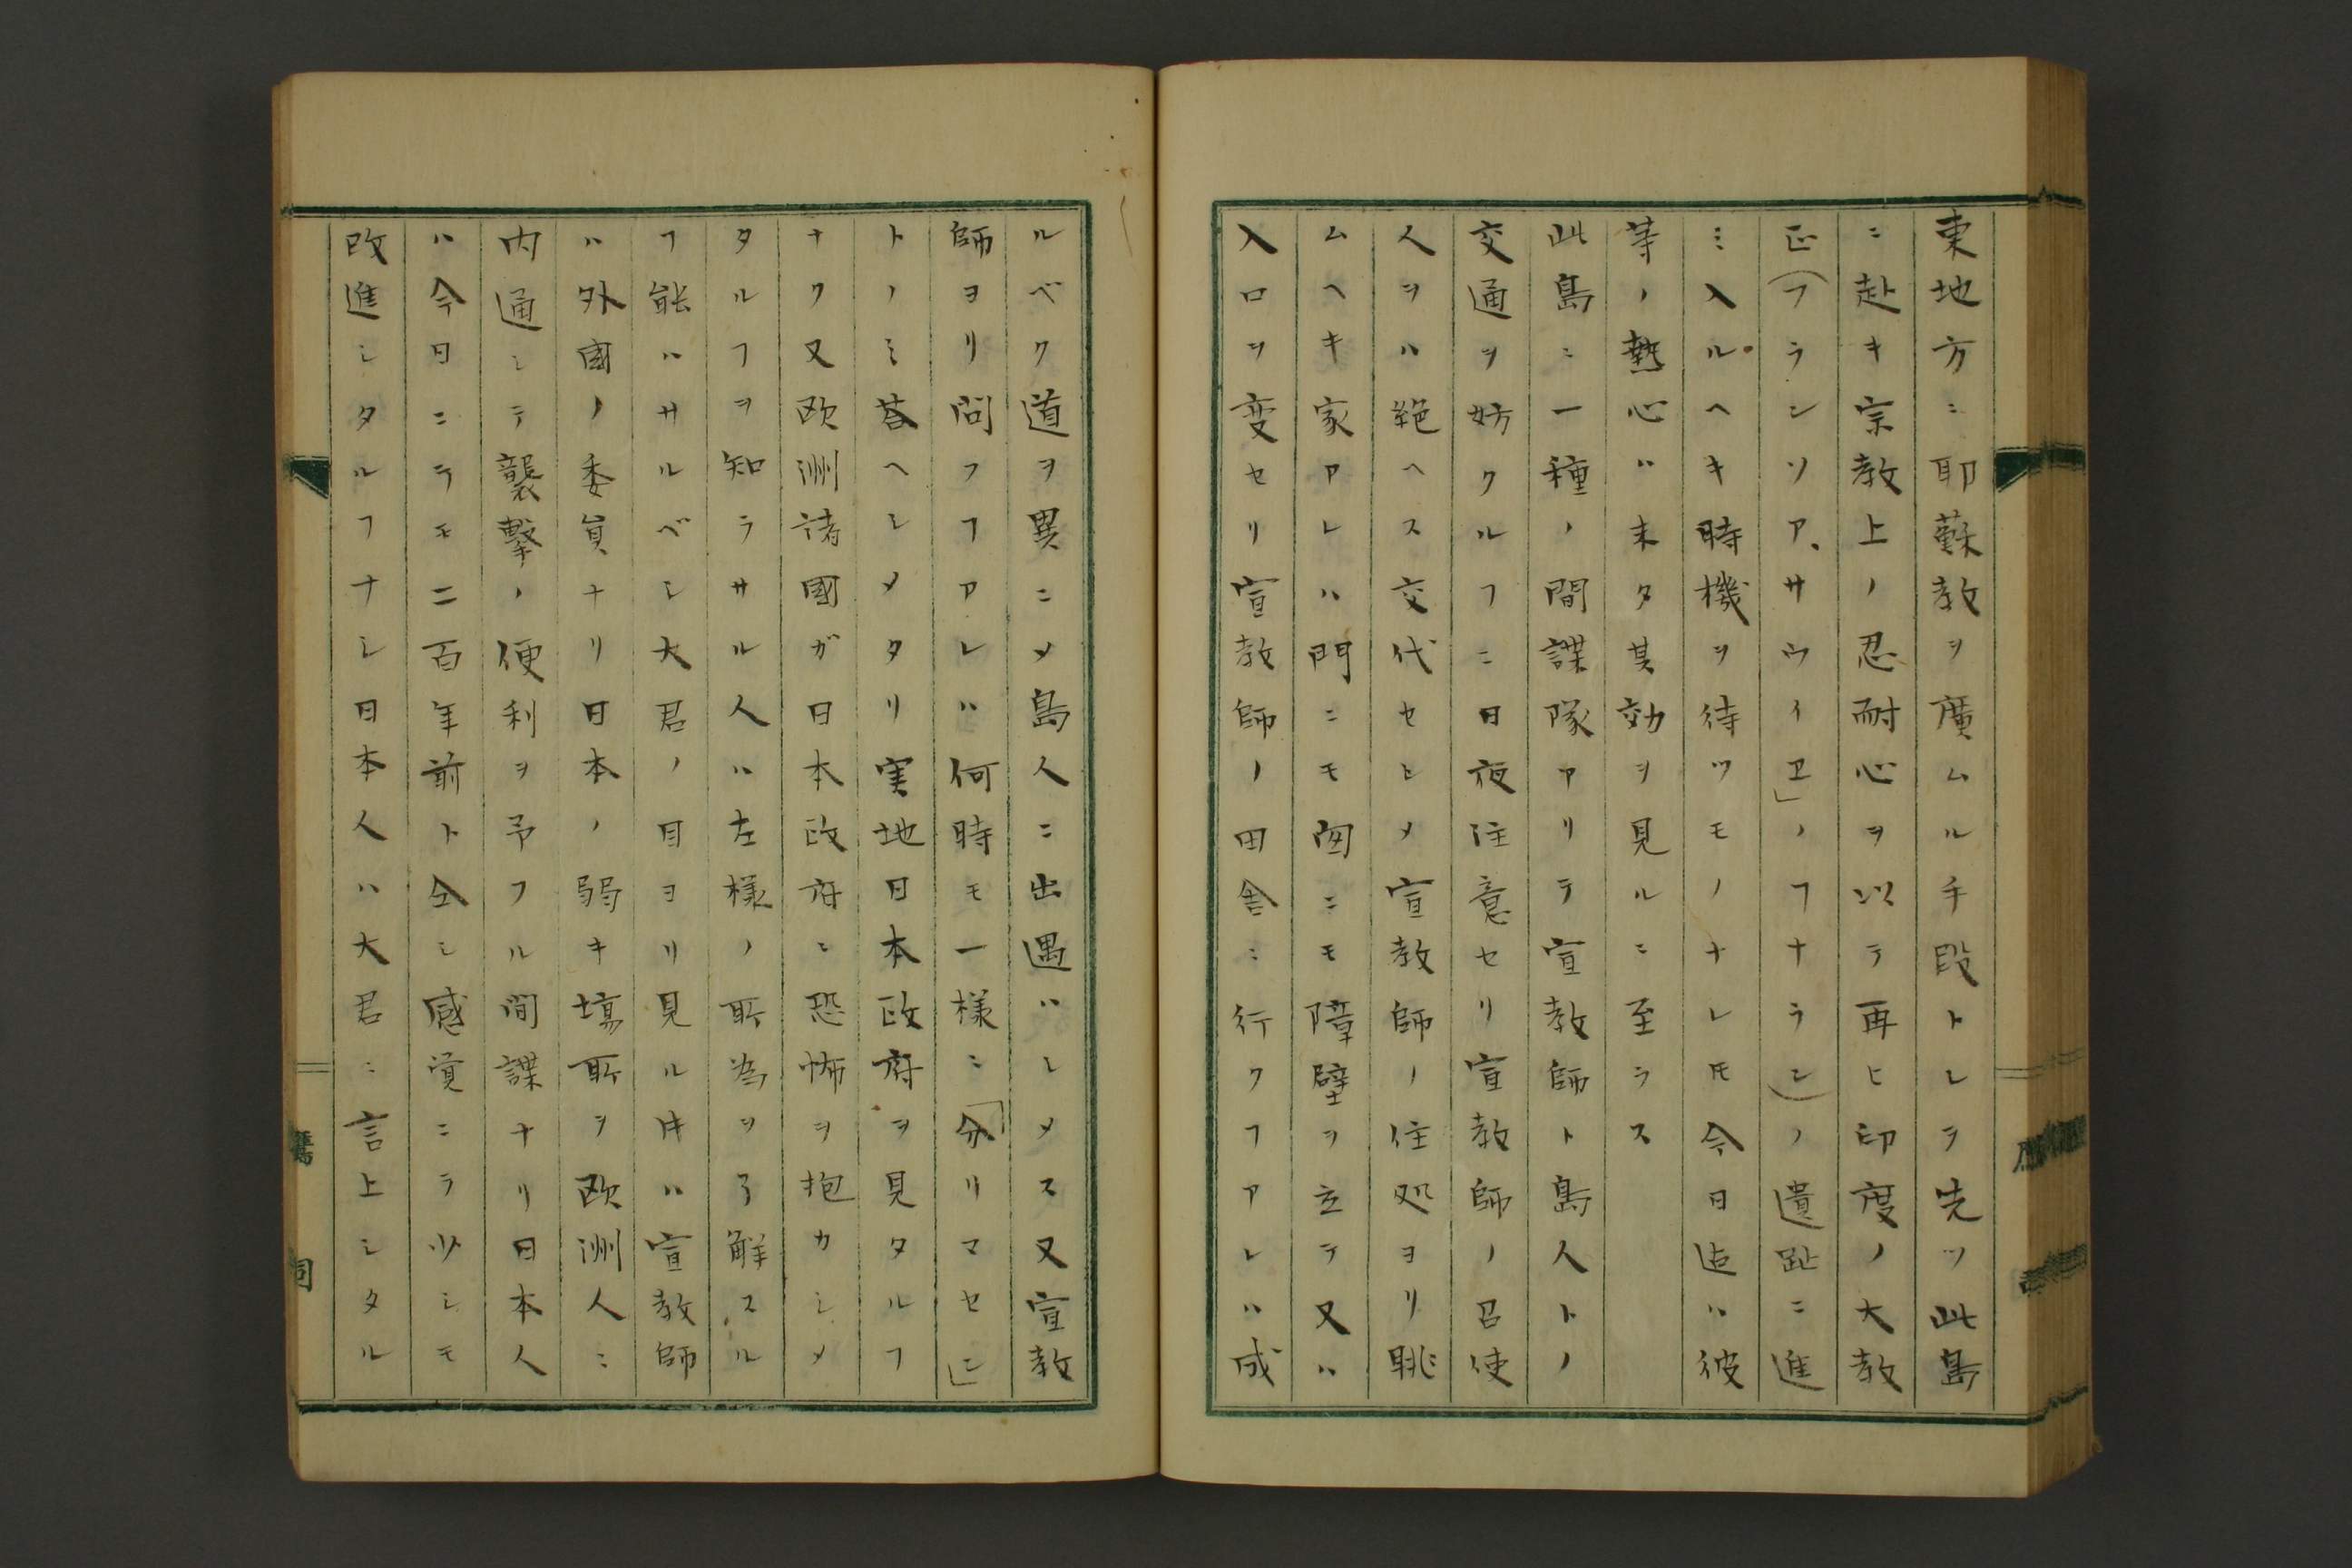 東地方ニ耶蘇教ヲ廣ムル手段トシテ先ツ此島
ニ赴キ宗教上ノ忍耐心ヲ以テ再ヒ印度ノ大教
正(フランソア、サウイヱ」ノヿナラン)ノ遺趾ニ進
ミ入ルヘキ時機ヲ待ツモノナレ𪜈今日迠ハ彼
等ノ熱心ハ未タ其効ヲ見ルニ至ラス
此島ニ一種ノ間諜隊アリテ宣教師ト島人トノ
交通ヲ妨クルヿニ日夜注意セリ宣教師ノ召使
人ヲハ絶ヘス交代セシメ宣教師ノ住処ヨリ眺
ムヘキ家アレハ門ニモ囱ニモ障壁ヲ立テ又ハ
入口ヲ変セリ宣教師ノ田舎ニ行クヿアレハ成
ルベク道ヲ異ニメ島人ニ出遇ハシメス又宣教
師ヨリ問フヿアレハ何時モ一様ニ「分リマセン」
トノミ荅ヘシメタリ実地日本政府ヲ見タルヿ
ナク又欧洲諸國ガ日本政府ニ恐怖ヲ抱カシメ
タルヿヲ知ラサル人ハ左様ノ所為ヲ了解スル
ヿ能ハサルベシ大君ノ目ヨリ見ル时ハ宣教師
ハ外國ノ委員ナリ日本ノ弱キ塲所ヲ欧洲人ニ
内通シテ襲撃ノ便利ヲ予フル間諜ナリ日本人
ハ今日ニテモ二百年前ト仝シ感覚ニテ少シモ
改進シタルヿナシ日本人ハ大君ニ言上シタル